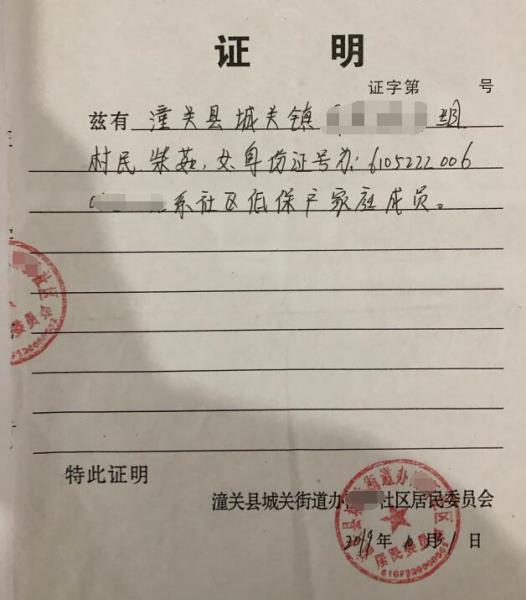 证 明
证字第 号
兹有 潼关县城关镇 组
村民柴茹，女身份证号为：6105222006
系社区低保户家庭成员。
社区
委员会
特此证明
潼关县城关街道办 社区居民委员会
2019年 月 1 日
居民委员